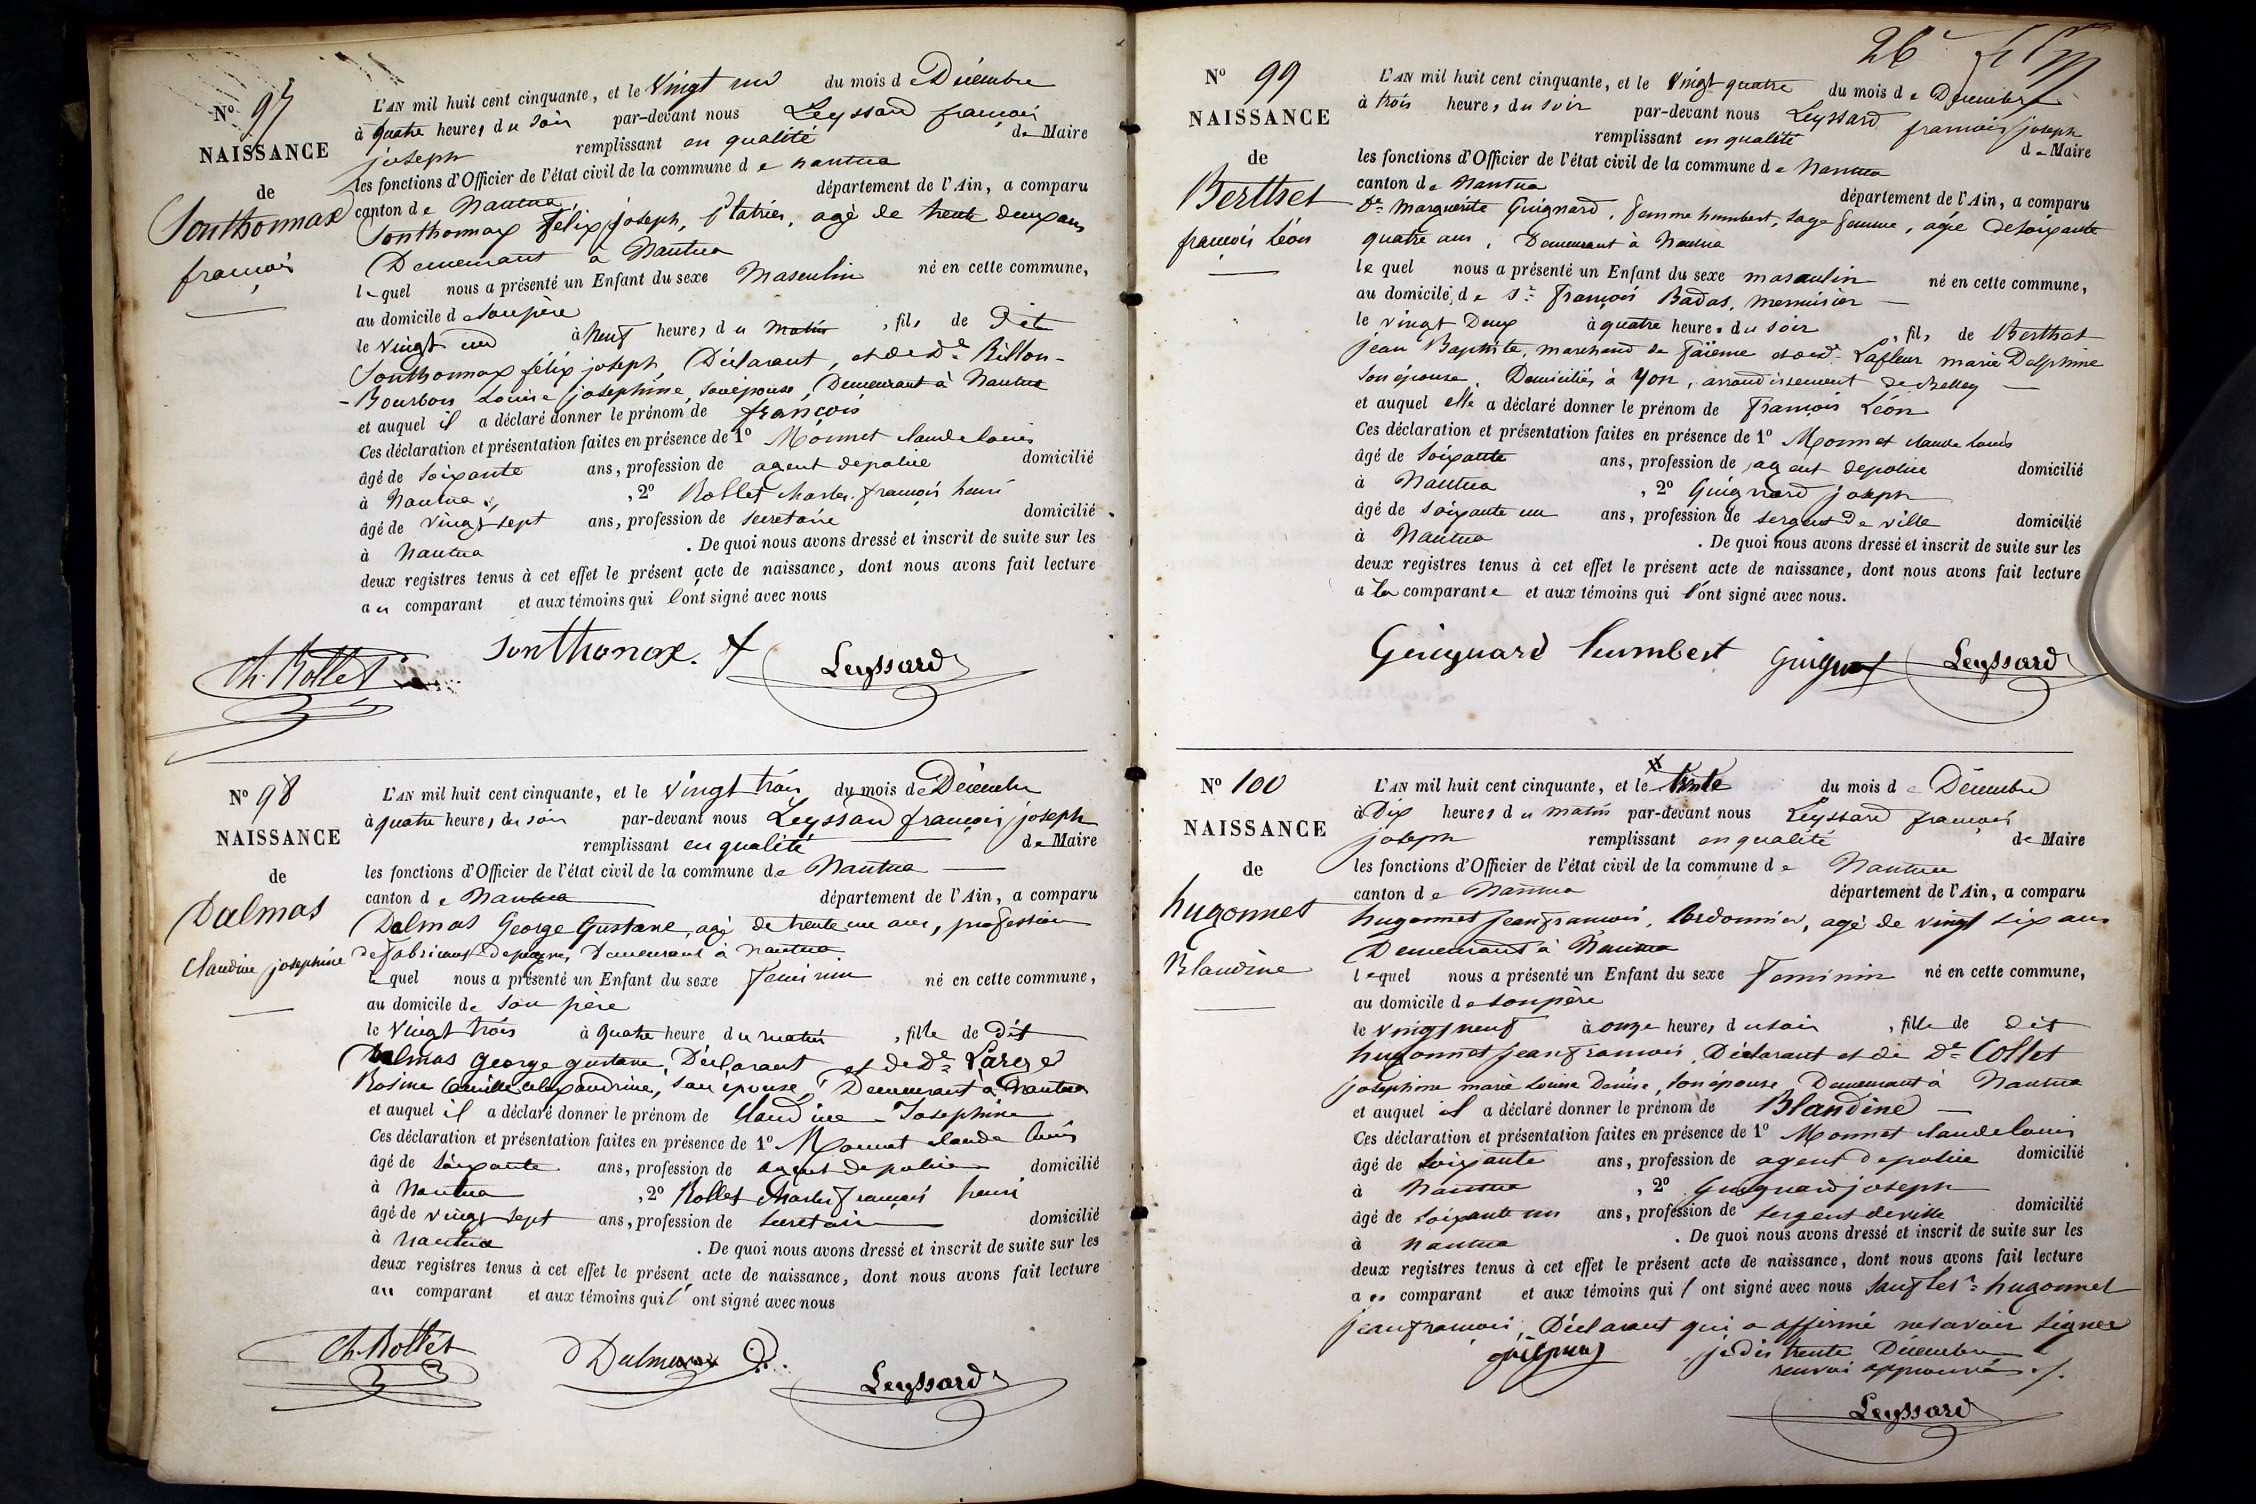 N.º 97
NAISSANCE
de
Sonthonnax
françois
L'AN mil huit cent cinquante, et le Vingt un du mois de Décembre
à quatre heures du soir par-devant nous Leyssard françois
joseph remplissant en qualité de Maire
les fonctions d'Officier de l'état civil de la commune de nantua
canton de Nantua département de l'Ain, a comparu
Sonthonnax félix joseph, platrier, agé de trente deux ans
Demeurant à Nantua
lequel nous a présenté un Enfant du sexe Masculin né en cette commune,
au domicile de son père
le vingt un à neuf heures du matin, fils de Dit
Sonthonnax félix joseph, Déclarant, et de De Billon-
-Bourbon Louise josephine, son épouse, Demeurant à Nantua
et auquel il a déclaré donner le prénom de françois
Ces déclaration et présentation faites en présence de 1º Monnet claude louis
âgé de soixante ans, profession de agent de police domicilié
à Nantua, 2º Rollet charles françois henri
âgé de vingt sept ans, profession de secretaire domicilié
à Nantua. De quoi nous avons dressé et inscrit de suite sur les
deux registres tenus à cet effet le présent acte de naissance, dont nous avons fait lecture
au comparant et aux témoins qui l'ont signé avec nous
Ch. Rollet Sonthonax. f Leyssard
Nº 98
NAISSANCE
de
Dalmas
claudine josephine
L'AN mil huit cent cinquante, et le vingt trois du mois de Décembre
à quatre heures du soir par-devant nous Leyssard françois joseph
remplissant en qualité de Maire
les fonctions d'Officier de l'état civil de la commune de Nantua
canton de Nantua département de l'Ain, a comparu
Dalmas George Gustave, agé de trente un ans, profession
de fabricant de peigne, Demeurant à nantua
lequel nous a présenté un Enfant du sexe feminin né en cette commune,
au domicile de son père
le vingt trois à quatre heure du matin, fille de Dit
Dalmas George gustave, Déclarant et de De Large
Rosine Camille alexandrine, son épouse, Demeurant à Nantua
et auquel il a déclaré donner le prénom de Claudine Josephine
Ces déclaration et présentation faites en présence de 1º Monnet claude louis
âgé de soixante ans, profession de agent de police domicilié
à Nantua, 2º Rollet charles françois henri
âgé de vingt sept ans, profession de secretaire domicilié
à Nantua. De quoi nous avons dressé et inscrit de suite sur les
deux registres tenus à cet effet le présent acte de naissance, dont nous avons fait lecture
au comparant et aux témoins qui l'ont signé avec nous
Ch. Rollet Dalmas Leyssard
26
Nº 99
NAISSANCE
de
Berthet
françois Léon
L'AN mil huit cent cinquante, et le vingt quatre du mois de Décembre
à trois heures du soir par-devant nous Leyssard françois joseph
remplissant en qualité de Maire
les fonctions d'Officier de l'état civil de la commune de Nantua
canton de Nantua département de l'Ain, a comparu
De Marguerite Guignard, femme humbert, sage femme, agée de soixante
quatre ans, Demeurant à Nantua
lequel nous a présenté un Enfant du sexe masculin né en cette commune,
au domicile, de Sr François Badas, menuisier
le vingt Deux à quatre heures du soir, fils de Berthet
jean Baptiste, marchand de faïence et de De Lafleur marie Delphine
son épouse, Domiciliés à Yon, arrondissement de Belley
et auquel elle a déclaré donner le prénom de françois Léon
Ces déclaration et présentation faites en présence de 1º Monnet claude louis
âgé de soixante ans, profession de agent de police domicilié
à Nantua, 2º Guignard joseph
âgé de soixante un ans, profession de sergent de ville domicilié
à Nantua. De quoi nous avons dressé et inscrit de suite sur les
deux registres tenus à cet effet le présent acte de naissance, dont nous avons fait lecture
à la comparante et aux témoins qui l'ont signé avec nous.
Guiguard humbert Leyssard
Nº 100
NAISSANCE
de
hugonnet
Blandine
L'AN mil huit cent cinquante, et le trente du mois de Décembre
à Dix heures du matin par-devant nous Leyssard françois
joseph remplissant en qualité de Maire
les fonctions d'Officier de l'état civil de la commune de Nantua
canton de Nantua département de l'Ain, a comparu
hugonnet jean françois, Cordonnier, agé de vingt six ans
Demeurant à Nantua
lequel nous a présenté un Enfant du sexe feminin né en cette commune,
au domicile de son père
le vingt neuf à onze heures du soir, fille de Dit
hugonnet jean francois, Déclarant et de De Collet
josephine marie Louise Denise, son épouse, Demeurant à Nantua
et auquel il a déclaré donner le prénom de Blandine
Ces déclaration et présentation faites en présence de 1º Monnet claude louis
âgé de soixante ans, profession de agent de police domicilié
à Nantua, 2º Guignard joseph
âgé de soixante un ans, profession de sergent de ville domicilié
à Nantua. De quoi nous avons dressé et inscrit de suite sur les
deux registres tenus à cet effet le présent acte de naissance, dont nous avons fait lecture
au comparant et aux témoins qui l'ont signé avec nous sauf le sr hugonnet
jean francois, Déclarant qui a affirmé ne savoir signer
je dis trente Décembre
renvoi approuvé
Leyssard